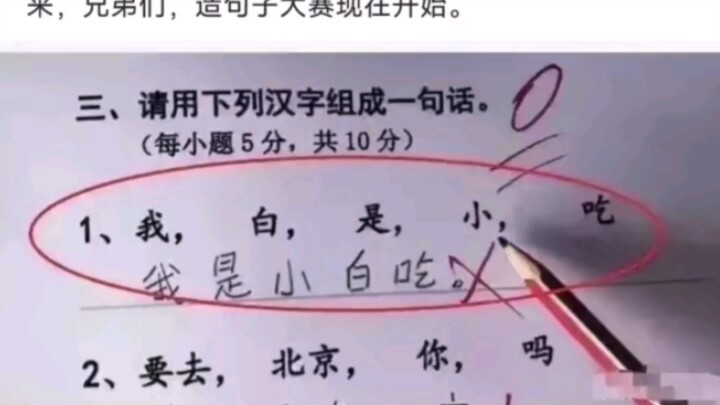 来，兄弟们，造句子大赛现在开始。
三、请用下列汉字组成一句话。
（每小题5分，共10分）
1、我， 白， 是， 小， 吃
我是小白吃。
2、要去， 北京， 你， 吗